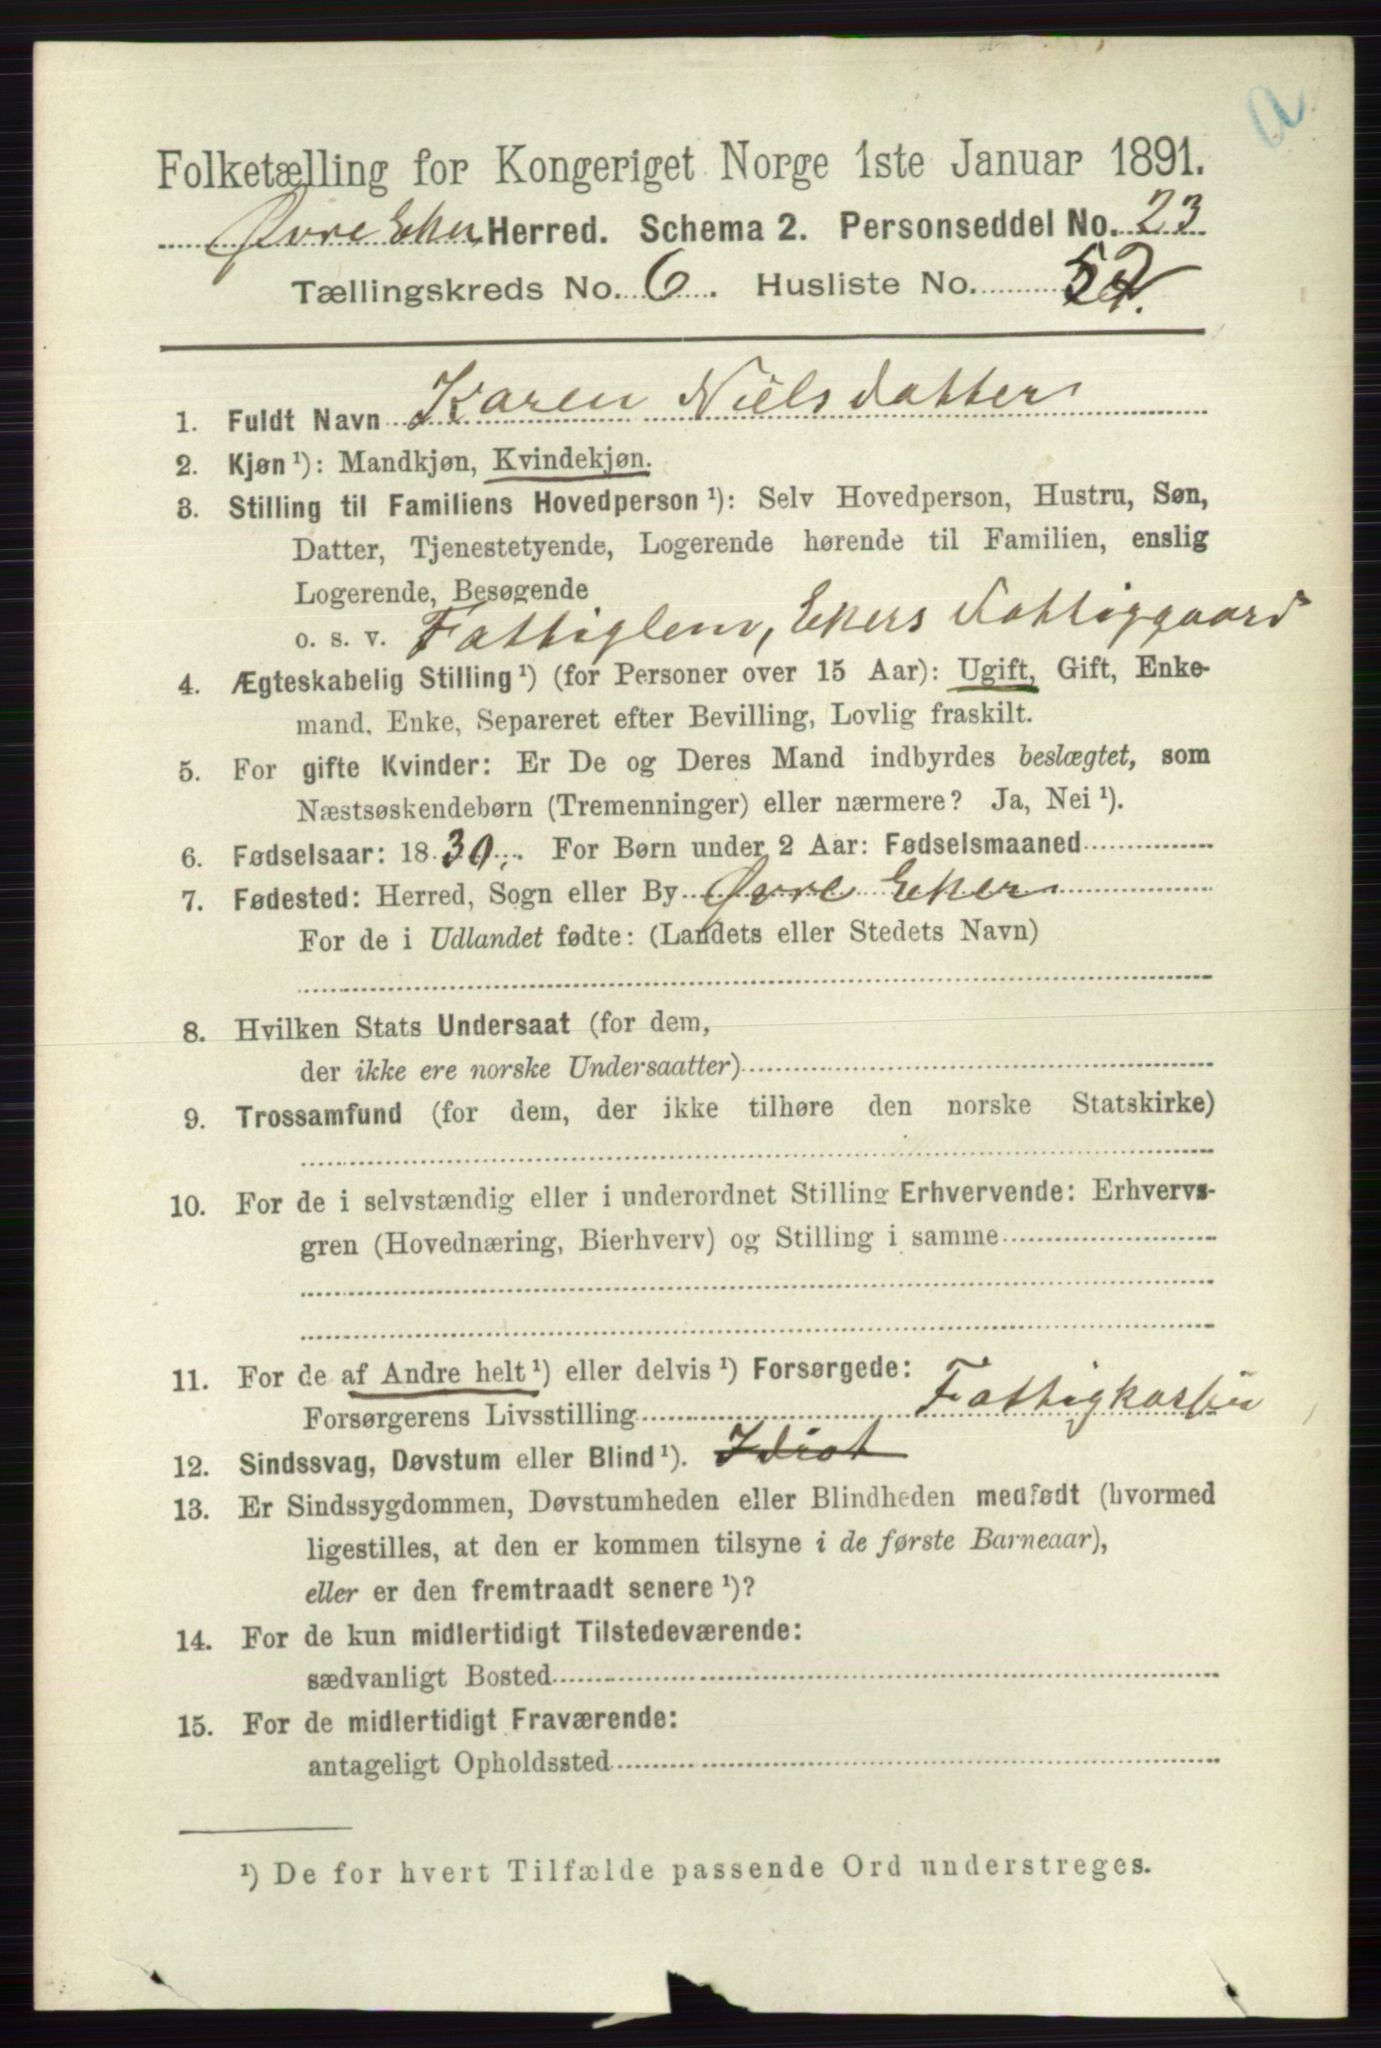 a
Folketælling for Kongeriget Norge 1ste Januar 1891.
Øvre Eker Herred. Schema 2. Personseddel No. 23
Tællingskreds No. 6. Husliste No.
1. Fuldt Navn Karen Nielsdatter
2. Kjøn¹): Mandkjøn, Kvindekjøn.
3. Stilling til Familiens Hovedperson¹): Selv Hovedperson, Hustru, Søn,
Datter, Tjenestetyende, Logerende hørende til Familien, enslig
Logerende, Besøgende
o. s. v. Fattiglem, Ekers Fattiggaard
4. Ægteskabelig Stilling¹) (for Personer over 15 Aar): Ugift, Gift, Enke-
mand, Enke, Separeret efter Bevilling, Lovlig fraskilt.
5. For gifte Kvinder: Er De og Deres Mand indbyrdes beslægtet, som
Næstsøskendebørn (Tremenninger) eller nærmere? Ja, Nei¹).
6. Fødselsaar: 1830. For Børn under 2 Aar: Fødselsmaaned
7. Fødested: Herred, Sogn eller By Øvre Eker
For de i Udlandet fødte: (Landets eller Stedets Navn)
8. Hvilken Stats Undersaat (for dem,
der ikke ere norske Undersaatter)
9. Trossamfund (for dem, der ikke tilhøre den norske Statskirke)
10. For de i selvstændig eller i underordnet Stilling Erhvervende: Erhvervs-
gren (Hovednæring, Bierhverv) og Stilling i samme
11. For de af Andre helt¹) eller delvis¹) Forsørgede:
Forsørgerens Livsstilling Fattigkassen
12. Sindssvag, Døvstum eller Blind¹). Idiot
13. Er Sindssygdommen, Døvstumheden eller Blindheden medfødt (hvormed
ligestilles, at den er kommen tilsyne i de første Barneaar),
eller er den fremtraadt senere¹)?
14. For de kun midlertidigt Tilstedeværende:
sædvanligt Bosted
15. For de midlertidigt Fraværende:
antageligt Opholdssted
¹) De for hvert Tilfælde passende Ord understreges.